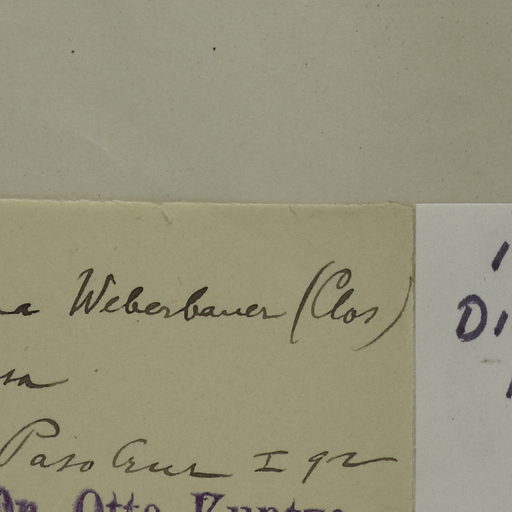 na Weberbauer (Clos)
sa
Paso Cruz I 92
Dr. Otto Kuntze
Di